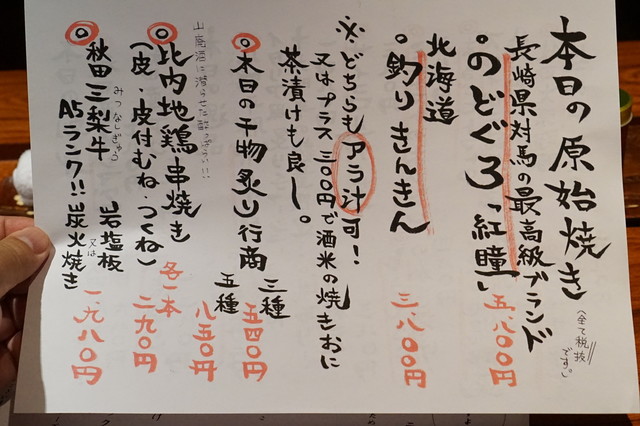 本日の原始焼き
(全て税抜です。)
長崎県対馬の最高級ブランド
•のどぐろ"紅瞳"
五、八〇〇円
北海道
•釣りきんきん
三、八〇〇円
※どちらもアラ汁可!
又はプラス三〇〇円で酒米の焼きおに
茶漬けも良し。
◎本日の干物炙り行商
三種 五四〇円
五種 八五〇円
◎比内地鶏串焼き
(皮・皮付むね・つくね)
各一本 二九〇円
◎秋田三梨牛 岩塩板
みつなしぎゅう
又は
A5ランク!! 炭火焼き
一、九八〇円